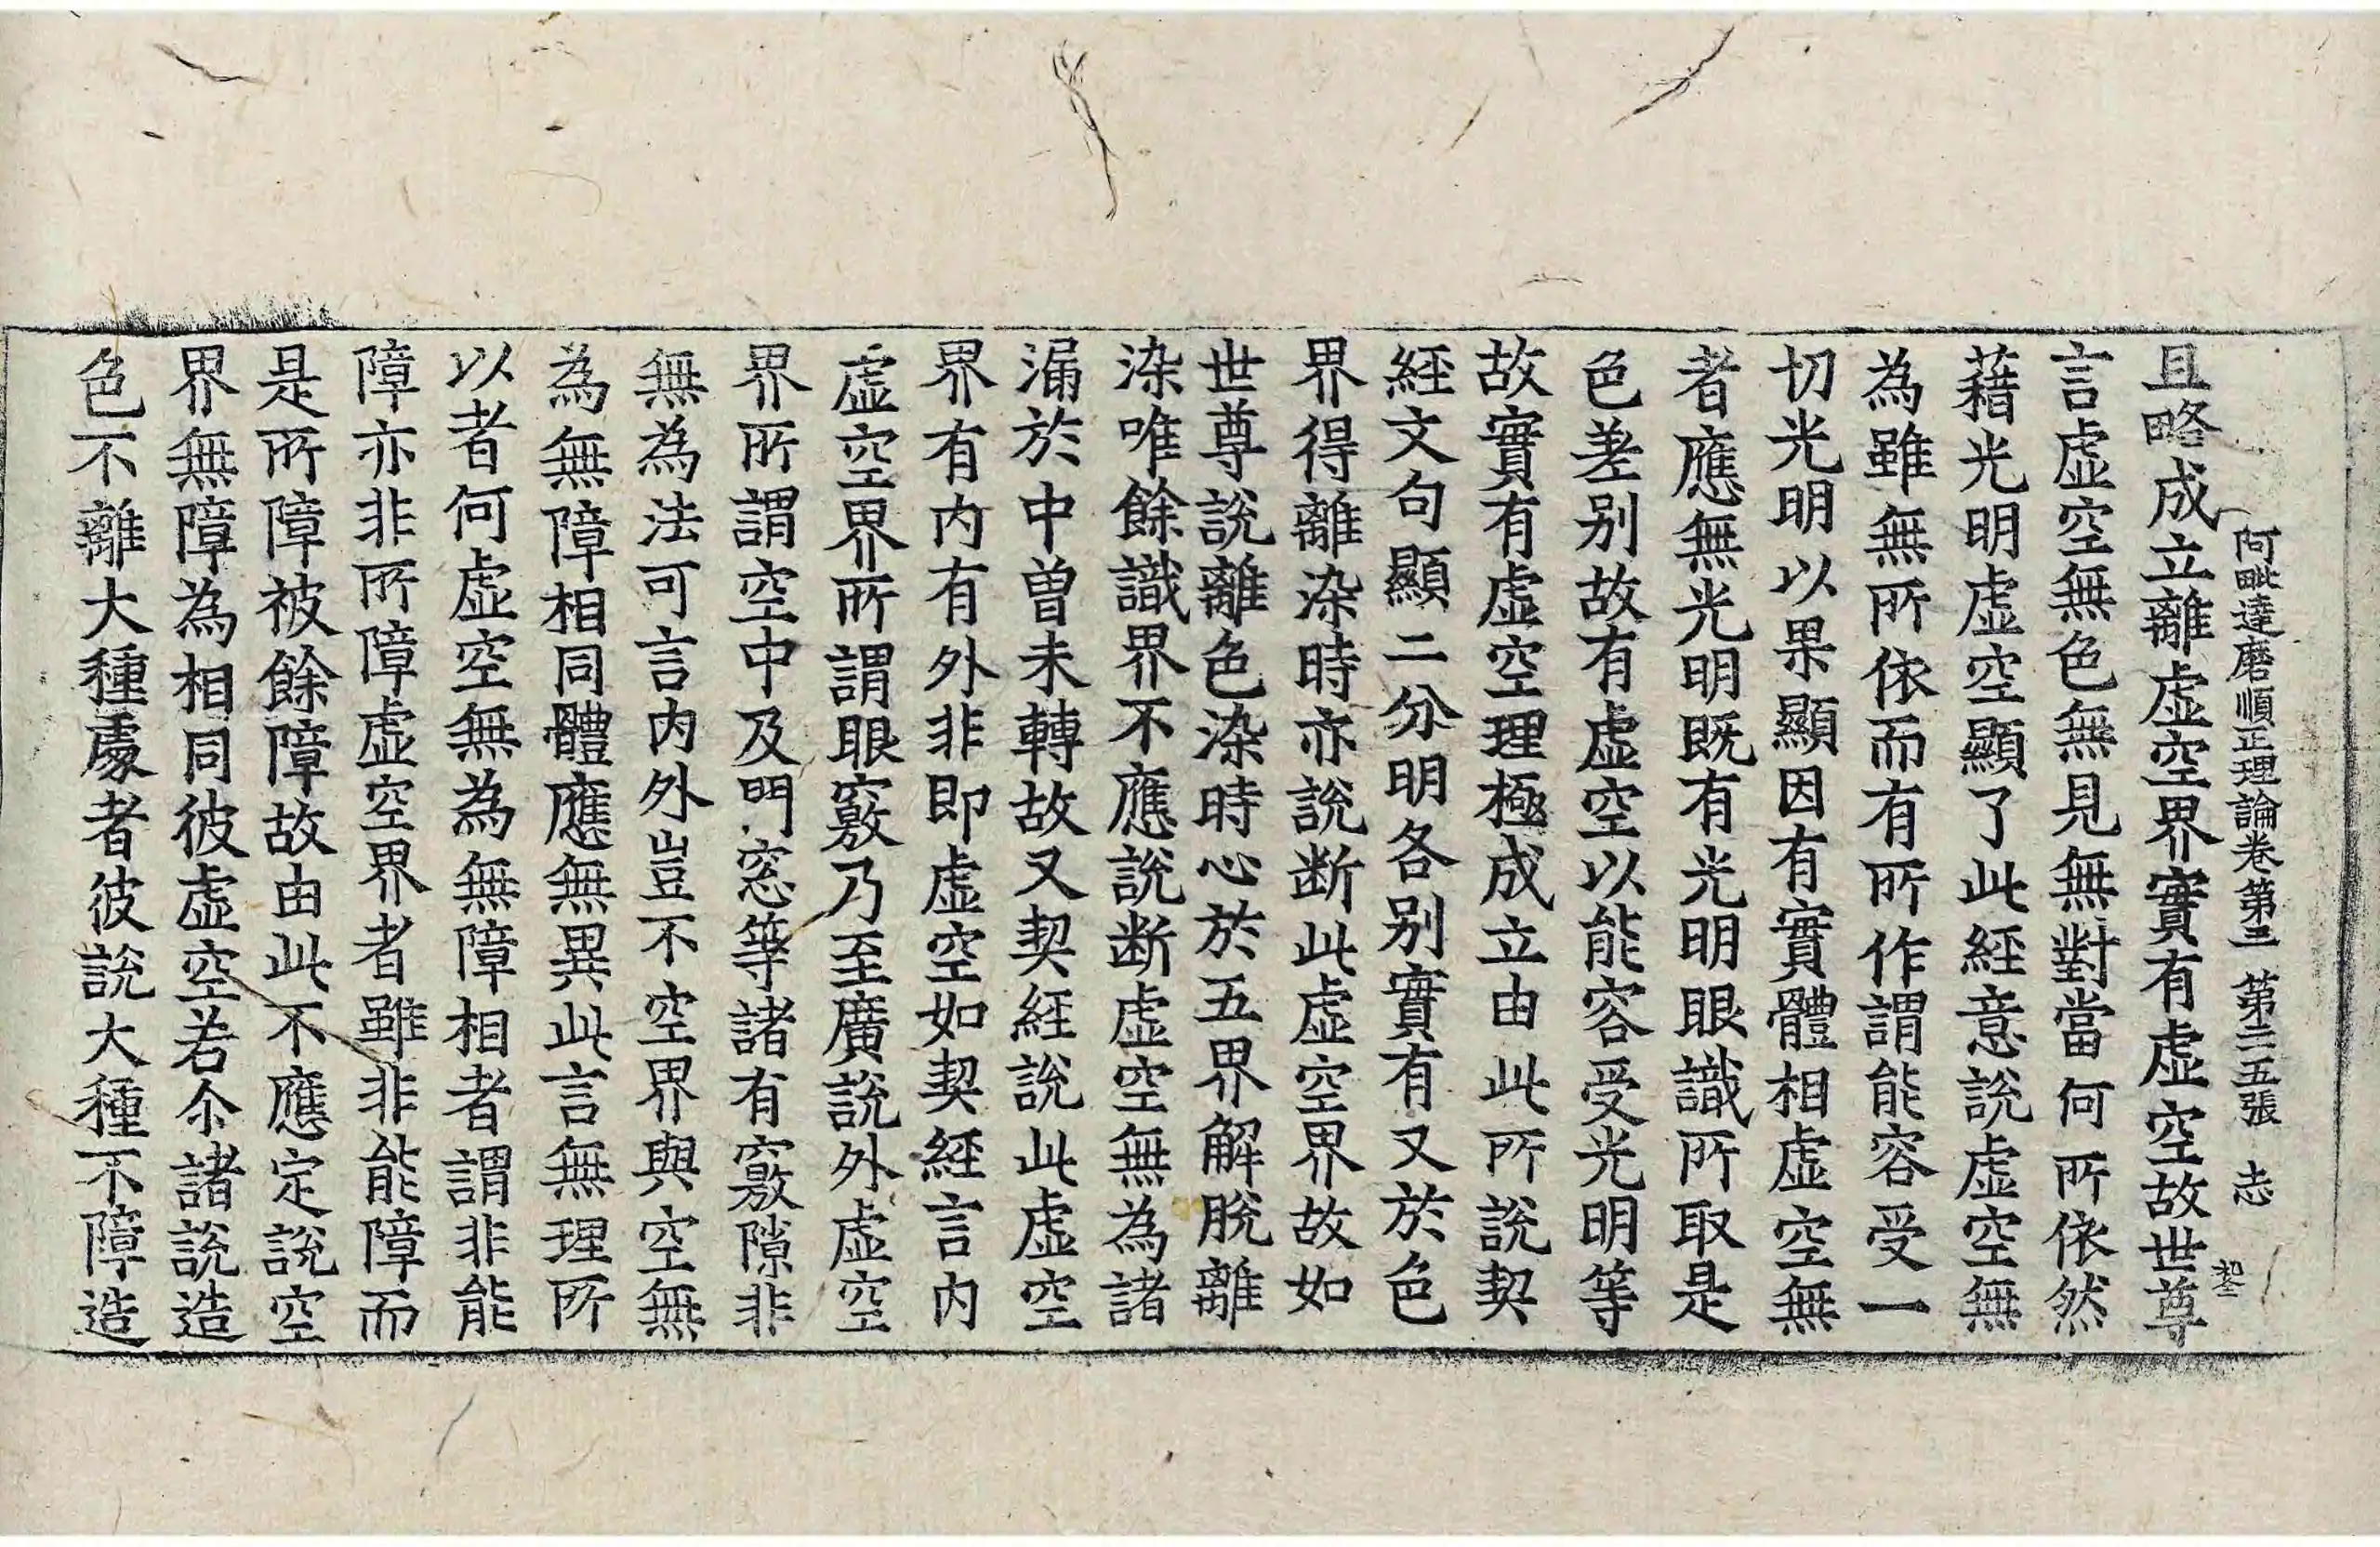 阿毗達磨順正理論卷第三 第二五張 志
且略成立離虛空界實有虛空故世尊
言虛空無色無見無對當何所依然
藉光明虛空顯了此經意說虛空無
為雖無所依而有所作謂能容受一
切光明以果顯因有實體相虛空無
者應無光明旣有光明眼識所取是
色差別故有虛空以能容受光明等
故實有虛空理極成立由此所說契
經文句顯二分明各別實有又於色
界得離染時亦說断此虛空界故如
世尊說離色染時心於五界解脫離
染唯餘識界不應說断虛空無為諸
漏於中曾未轉故又契經說此虛空
界有內有外非即虛空如契經言內
虛空界所謂眼竅乃至廣說外虛空
界所謂空中及門窓等諸有竅隙非
無為法可言內外豈不空界與空無
為無障相同體應無異此言無理所
以者何虛空無為無障相者謂非能
障亦非所障虛空界者雖非能障而
是所障被餘障故由此不應定說空
界無障為相同彼虛空若尒諸說造
色不離大種處者彼說大種不障造